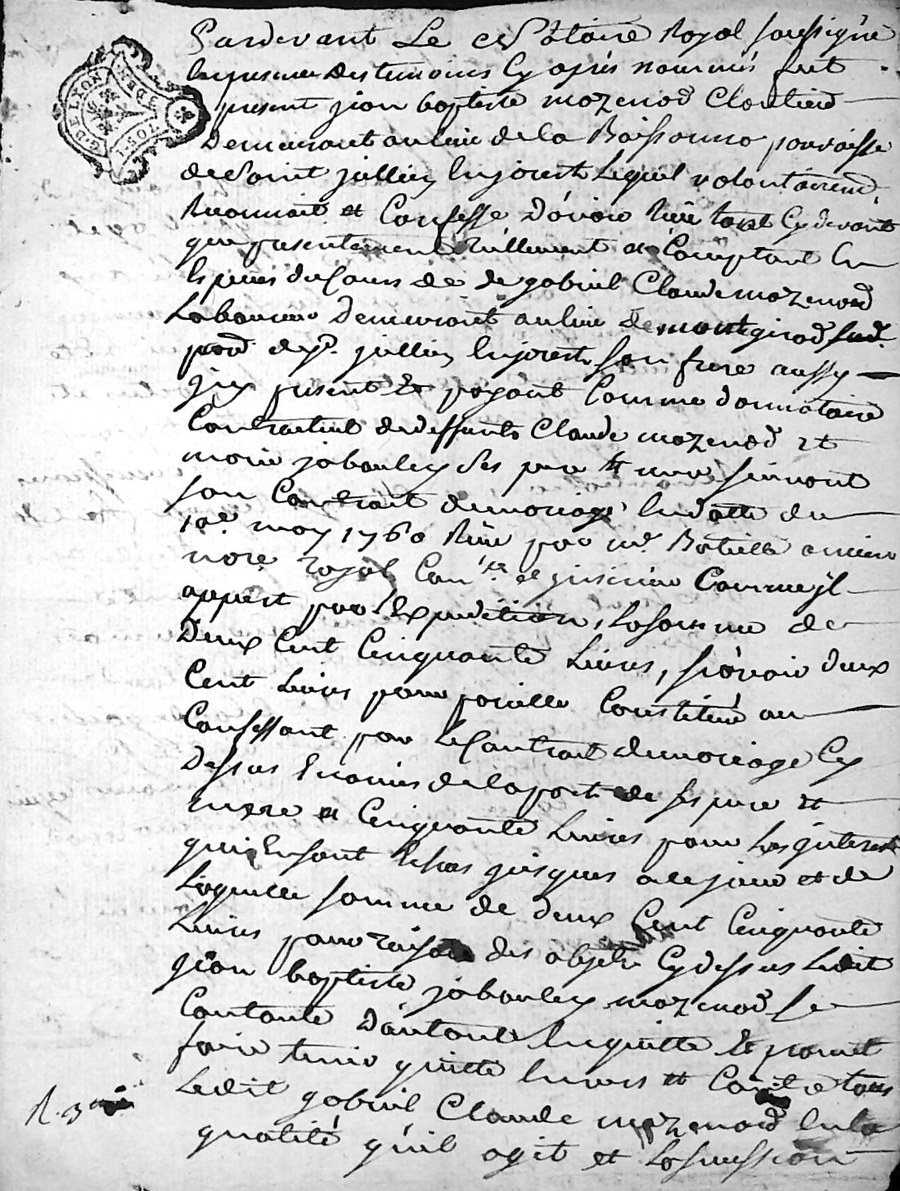 G. DE LYON
Pardevant Le Notaire Royal soussigné
En presence des temoins Cy après nommés fut
present jean baptiste mazenod Cloutier
Demeurant au lieu de la Boissonna parroisse
de Saint jullien lequel volontairem.t
Reconnoit et Confesse d'avoir Reçu tant Cy devant
que presentement Réellement et Comptant En
Especes du Cours de de gabriel Claude mazenod
Laboureur Demeurant au lieu de montgirod
parr. de S.t jullien son frere aussy
jcy present Et payant Comme donnataire
Contractuel de deffunts Claude mazenod et
marie jabouley ses pere et mere suivant
son Contrait de mariage En datte du
may 1760 Reçu par m.e ancien
no.re royal Comme jl
appert par Expedition, La somme de
Deux Cent Cinquante Livres, sçavoir deux
Cent Livres pour pareille Constituée au
Confessant par le Contrait de mariage Cy
Dessus Enoncé de la part de ses pere et
mere et Cinquante Livres pour Les jnterest
qui En sont Echus jusques a ce jour et de
Laquelle somme de deux Cent Cinquante
Livres pour raison des objets Cy dessus Ledit
jean baptiste jabouley mazenod se
Contante D'autant En quitte Et promet
faire tenir quitte Envers et Contre tous
Ledit gabriel Claude mazenod En la
qualité qu'il agit et La succession